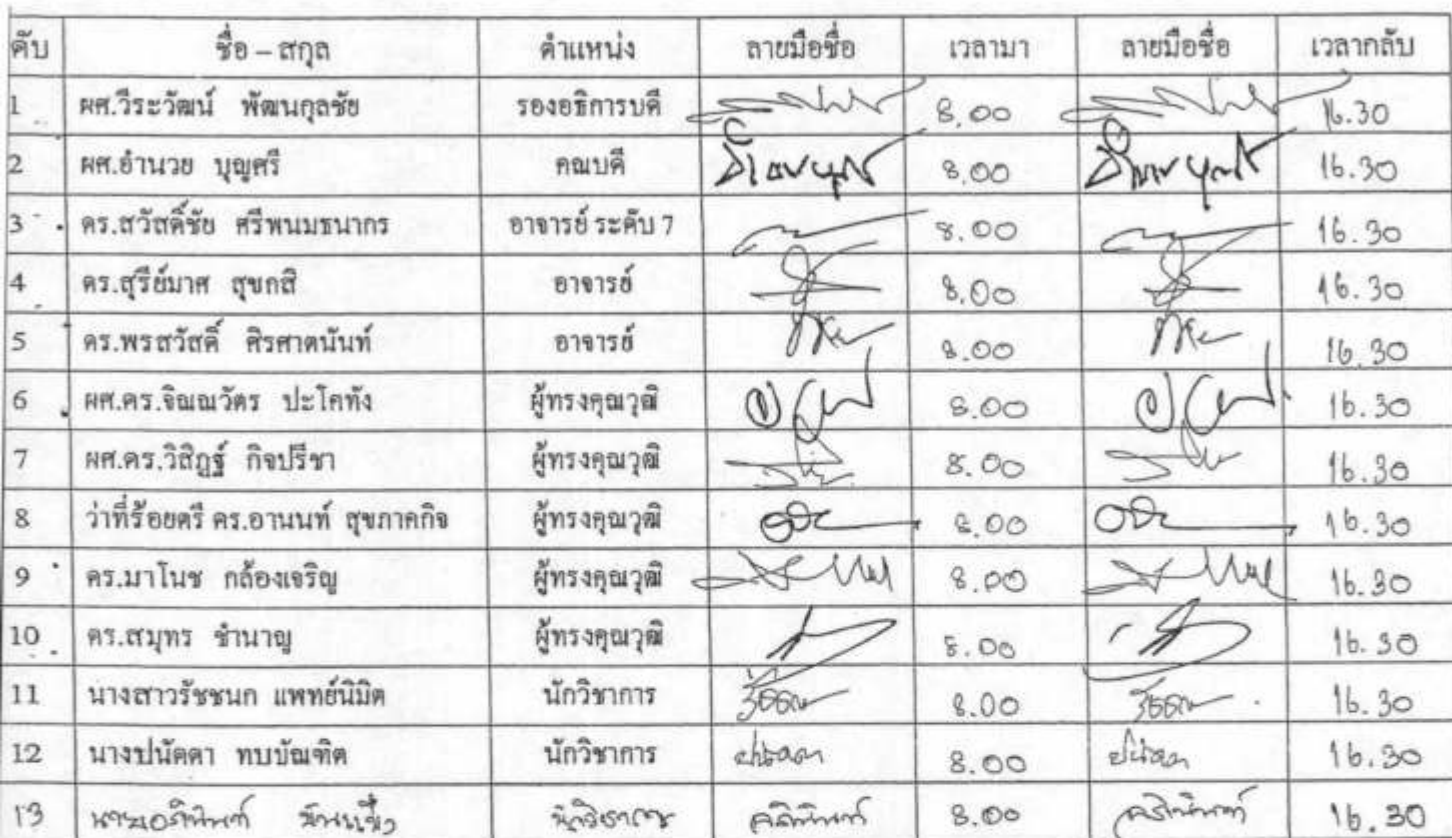 ดับ ชื่อ – สกุล ตำแหน่ง ลายมือชื่อ เวลามา ลายมือชื่อ เวลากลับ
1 ผศ.วีระวัฒน์ พัฒนกุลชัย รองอธิการบดี 8.00 16.30
2 ผศ.อำนวย บุญศรี คณบดี 8.00 16.30
3 ดร.สวัสดิ์ชัย ศรีพนมธนากร อาจารย์ ระดับ 7 8.00 16.30
4 ดร.สุรีย์มาศ สุขกสิ อาจารย์ 8.00 16.30
5 ดร.พรสวัสดิ์ ศิรศาตนันท์ อาจารย์ 8.00 16.30
6 ผศ.ดร.จิณณวัตร ปะโคทัง ผู้ทรงคุณวุฒิ 8.00 16.30
7 ผศ.ดร.วิสิฎฐ์ กิจปรีชา ผู้ทรงคุณวุฒิ 8.00 16.30
8 ว่าที่ร้อยตรี ดร.อานนท์ สุขภาคกิจ ผู้ทรงคุณวุฒิ 8.00 16.30
9 ดร.มาโนช กล้องเจริญ ผู้ทรงคุณวุฒิ 8.00 16.30
10 ดร.สมุทร ชำนาญ ผู้ทรงคุณวุฒิ 8.00 16.30
11 นางสาวรัชชนก แพทย์นิมิต นักวิชาการ 8.00 16.30
12 นางปนัดดา ทบบัณฑิต นักวิชาการ ปนัดดา 8.00 ปนัดดา 16.30
13 นักวิชาการ 8.00 16.30